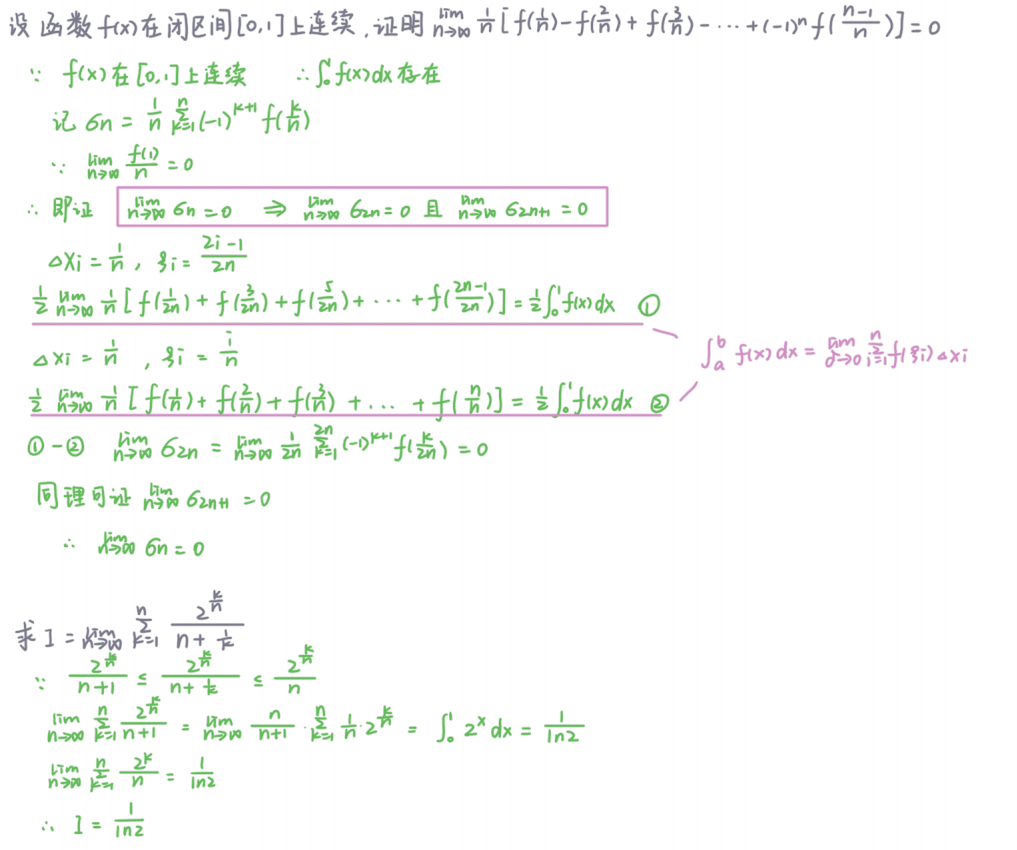 设函数f(x)在闭区间[0,1]上连续,证明 lim_{n→∞} 1/n [f(1/n)-f(2/n)+f(3/n)-···+(-1)^n f((n-1)/n)]=0
∵ f(x)在[0,1]上连续 ∴∫_0^1 f(x)dx存在
记 σn = 1/n Σ_{k=1}^{n} (-1)^{k+1} f(k/n)
∵ lim_{n→∞} f(1)/n = 0
∴ 即证 lim_{n→∞} σn = 0 ⇒ lim_{n→∞} σ2n = 0 且 lim_{n→∞} σ2n+1 = 0
△Xi = 1/n , ξi = (2i-1)/2n
1/2 lim_{n→∞} 1/n [f(1/2n)+f(3/2n)+f(5/2n)+···+f((2n-1)/2n)] = 1/2 ∫_0^1 f(x)dx ①
△xi = 1/n , ξi = i/n
∫_a^b f(x)dx = lim_{σ→0} Σ_{i=1}^{n} f(ξi)△xi
1/2 lim_{n→∞} 1/n [f(1/n)+f(2/n)+f(3/n)+...+f(n/n)] = 1/2 ∫_0^1 f(x)dx ②
①-② lim_{n→∞} σ2n = lim_{n→∞} 1/2n Σ_{k=1}^{2n} (-1)^{k+1} f(k/2n) = 0
同理可证 lim_{n→∞} σ2n+1 = 0
∴ lim_{n→∞} σn = 0
求 I = lim_{n→∞} Σ_{k=1}^{n} 2^{k/n}/(n+1/k)
∵ 2^{k/n}/(n+1) ≤ 2^{k/n}/(n+1/k) ≤ 2^{k/n}/n
lim_{n→∞} Σ_{k=1}^{n} 2^{k/n}/(n+1) = lim_{n→∞} n/(n+1) · Σ_{k=1}^{n} 1/n · 2^{k/n} = ∫_0^1 2^x dx = 1/ln2
lim_{n→∞} Σ_{k=1}^{n} 2^k/n = 1/ln2
∴ I = 1/ln2